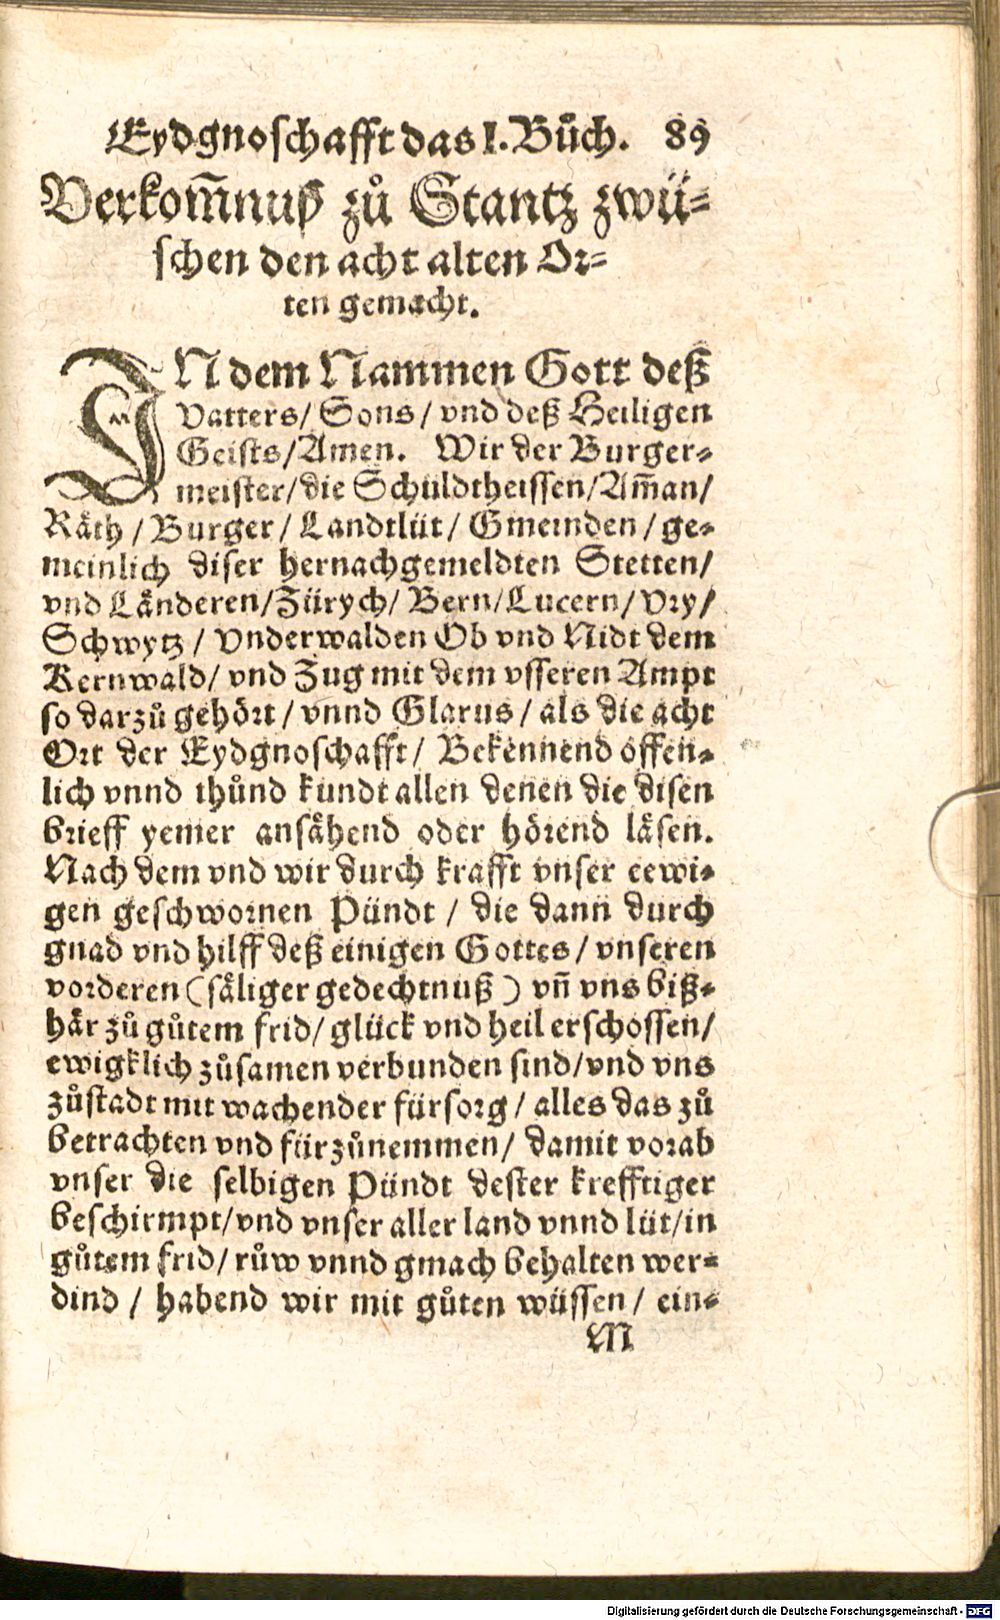 Eydgnoschafft das I. Bůch. 89
Verkom̃nuß zů Stantz zwü-
schen den acht alten Or-
ten gemacht.
IN dem Nammen Gott deß
Vatters/ Sons/ vnd deß Heiligen
Geists/ Amen. Wir der Burger-
meister/ die Schuldtheissen/ Am̃an/
Räth/ Burger/ Landtlüt/ Gmeinden/ ge-
meinlich diser hernachgemeldten Stetten/
vnd Länderen/ Zürych/ Bern/ Lucern/ Vry/
Schwytz/ Vnderwalden Ob vnd Nidt dem
Kernwald/ vnd Zug mit dem vsseren Ampt
so darzů gehört/ vnnd Glarus/ als die acht
Ort der Eydgnoschafft/ Bekennend offen-
lich vnnd thůnd kundt allen denen die disen
brieff yemer ansähend oder hörend läsen.
Nach dem vnd wir durch krafft vnser eewi-
gen geschwornen Pündt/ die dann durch
gnad vnd hilff deß einigen Gottes/ vnseren
vorderen (säliger gedechtnuß) vñ vns biß-
här zů gůtem frid/ glück vnd heil erschossen/
ewigklich zůsamen verbunden sind/ vnd vns
zůstadt mit wachender fürsorg/ alles das zů
betrachten vnd fürzůnemmen/ damit vorab
vnser die selbigen Pündt dester krefftiger
beschirmpt/ vnd vnser aller land vnnd lüt/ in
gůtem frid/ růw vnnd gmach behalten wer-
dind/ habend wir mit gůten wüssen/ ein-
M
Digitalisierung gefördert durch die Deutsche Forschungsgemeinschaft - DFG